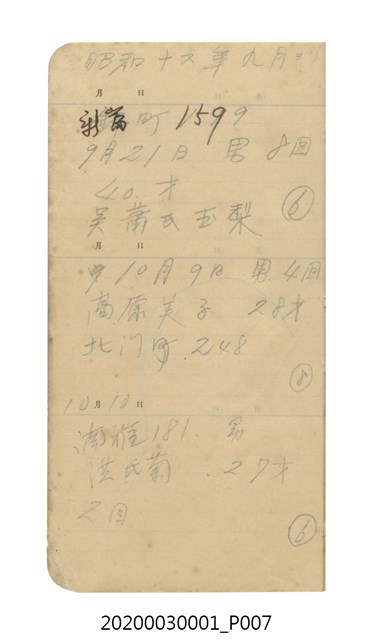 昭和十六年九月ヨリ
月 日
新富町 1599
9月21日 男 8回
40才
⑥
吳蕭氏玉梨
月 日
10月9日 男 4回
高原美子 28才
北门町 248
⑧
10月10日
雅181. 男
洪氏菊 . 27才
2回
⑥
20200030001_P007